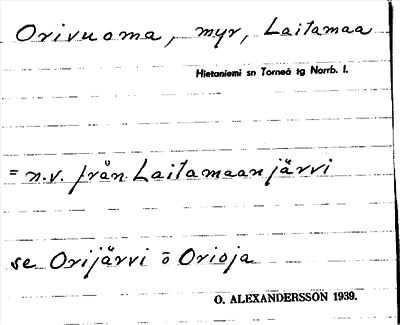 Orivuoma, myr, Laitamaa
Hietaniemi sn Torneå tg Norrb. l.
= n.v. från Laitamaanjärvi
se Orijärvi o Orioja
O. ALEXANDERSSON 1939.